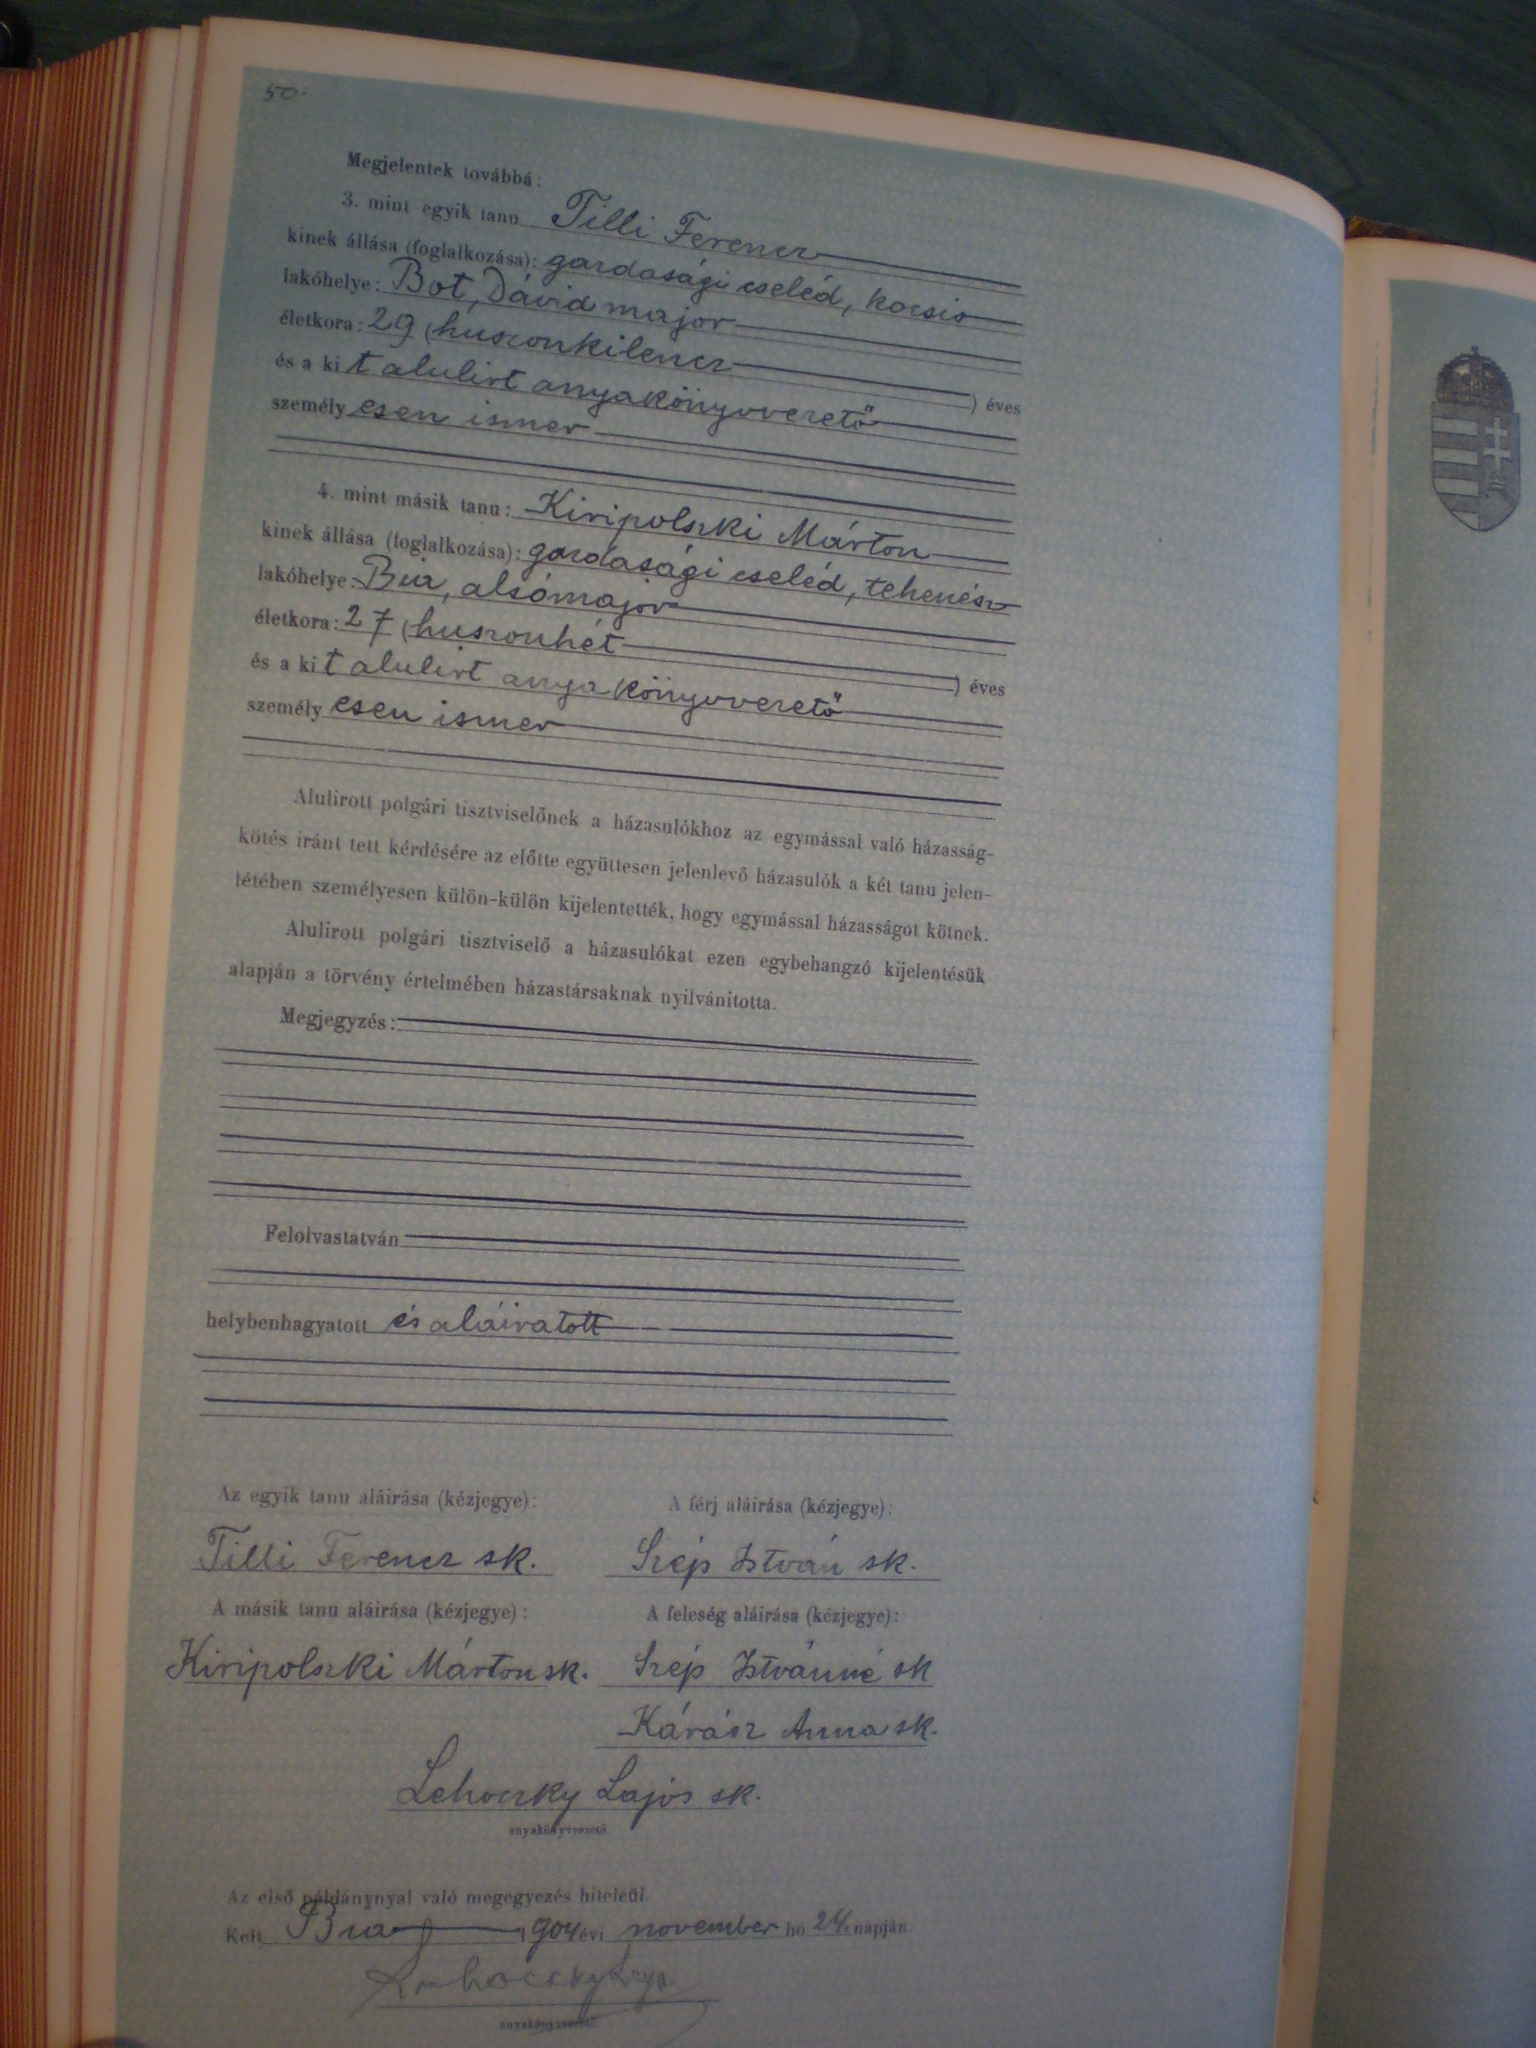 50.
Megjelentek továbbá:
3. mint egyik tanu Tilli Ferencz
kinek állása (foglalkozása): gazdasági cseléd, kocsis
lakóhelye: Bot, Dávid major
életkora: 29 (huszonkilencz) éves
és a kit alulirt anyakönyvvezető
személyesen ismer
4. mint másik tanu: Kiripolszki Márton
kinek állása (foglalkozása): gazdasági cseléd, tehenész
lakóhelye: Bia, alsómajor
életkora: 27 (huszonhét) éves
és a kit alulirt anyakönyvvezető
személyesen ismer
Alulirott polgári tisztviselőnek a házasulókhoz az egymással való házasság-
kötés iránt tett kérdésére az előtte együttesen jelenlevő házasulók a két tanu jelen-
létében személyesen külön-külön kijelentették, hogy egymással házasságot kötnek.
Alulirott polgári tisztviselő a házasulókat ezen egybehangzó kijelentésük
alapján a törvény értelmében házastársaknak nyilvánitotta.
Megjegyzés:
Felolvastatván
helybenhagyatott és aláiratott
Az egyik tanu aláirása (kézjegye): A férj aláirása (kézjegye):
Tilli Ferencz sk. Szép István sk.
A másik tanu aláirása (kézjegye): A feleség aláirása (kézjegye):
Kiripolszki Márton sk. Szép Istvánné sk
Kárász Anna sk.
Lehoczky Lajos sk.
anyakönyvvezető.
Az első példánynyal való megegyezés hiteléül
Kelt Bia 1904 évi november hó 24. napján
Lehoczky Lajos
anyakönyvvezető.